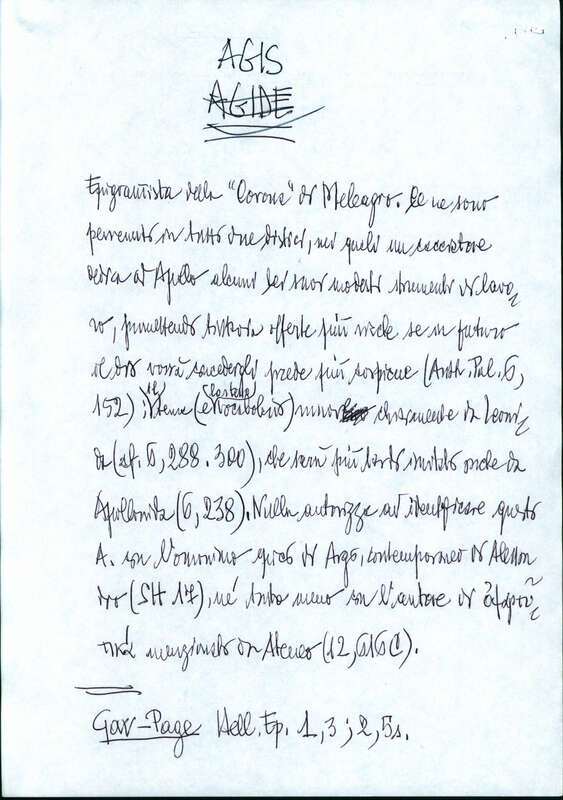 AGIS
AGIDE
Epigrammista della "Corona" di Meleagro. Ce ne sono
pervenuti in tutto due distici, nei quali un cacciatore
dedica ad Apollo alcuni dei suoi modesti strumenti di lavo-
ro, promettendo tuttavia offerte più ricche se in futuro
il dio vorrà concedergli prede più copiose (Anth. Pal. 6,
152); il tema (e lo stesso vocabolario) chiaramente da Leoni-
da (cf. 6, 288. 300), che sarà più tardi imitato anche da
Apollonida (6, 238). Nulla autorizza ad identificare questo
A. con l'omonimo epico di Argo, contemporaneo di Alessan
dro (SH 17), né tanto meno con l'autore di ὀψαρτυ-
τικά menzionato da Ateneo (12, 516 C).
Gow-Page Hell. Ep. 1, 3; 2, 5s.